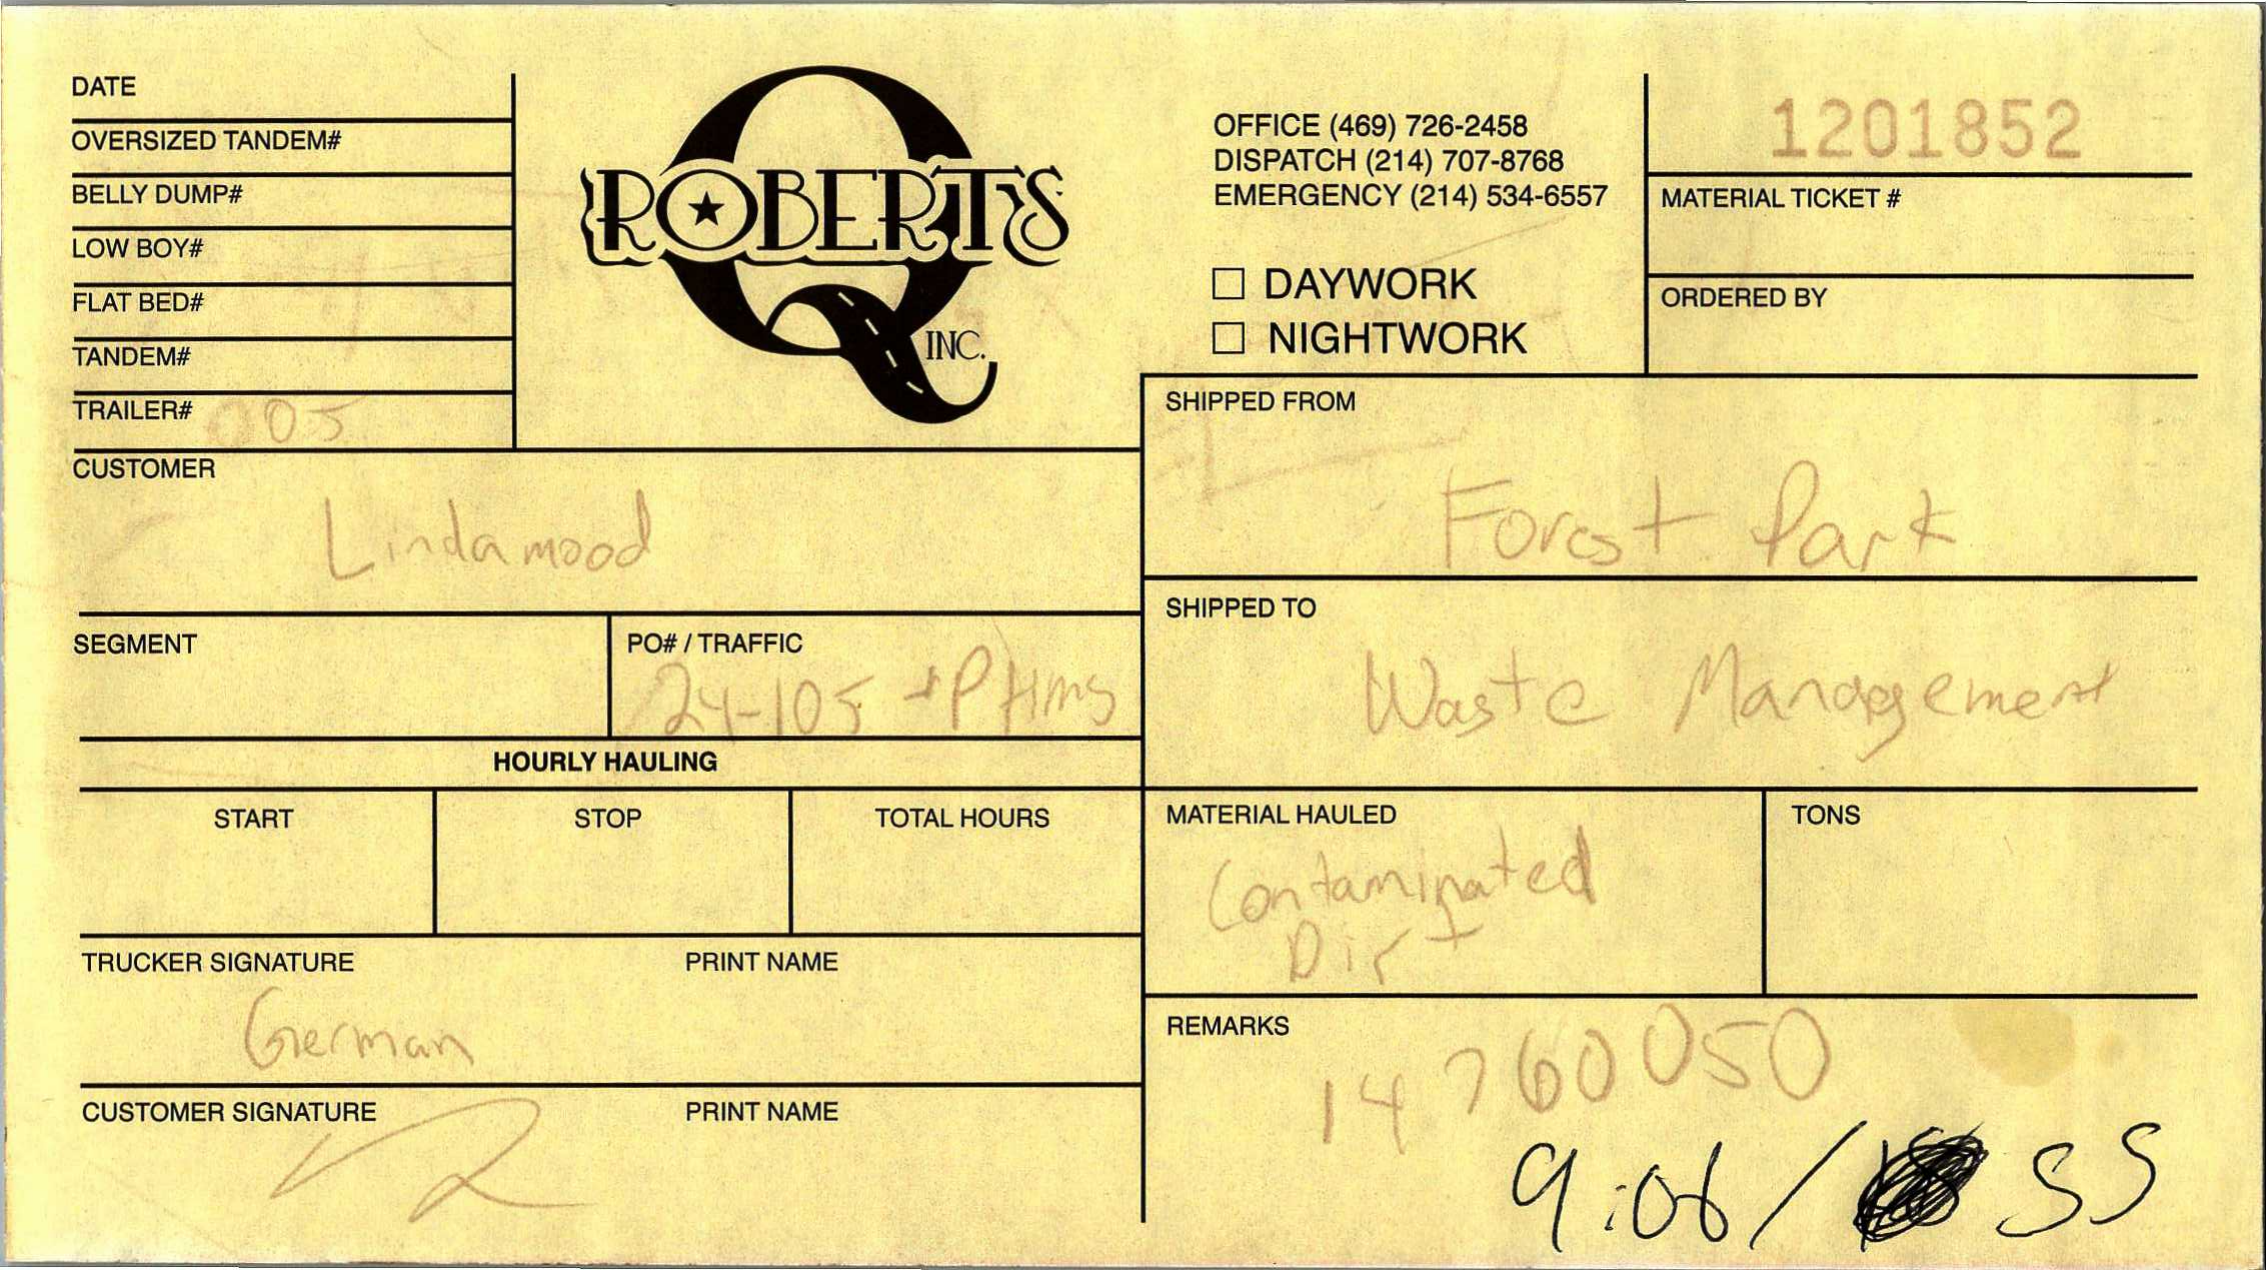 DATE
OVERSIZED TANDEM#
BELLY DUMP#
LOW BOY#
FLAT BED#
TANDEM#
TRAILER# 005
ROBERTS
INC.
OFFICE (469) 726-2458
DISPATCH (214) 707-8768
EMERGENCY (214) 534-6557
☐ DAYWORK
☐ NIGHTWORK
1201852
MATERIAL TICKET #
ORDERED BY
CUSTOMER
Lindamood
SHIPPED FROM
Forest Park
SEGMENT
PO# / TRAFFIC
24-105
SHIPPED TO
Waste Management
HOURLY HAULING
START
STOP
TOTAL HOURS
MATERIAL HAULED
Contaminated
Dirt
TONS
TRUCKER SIGNATURE
PRINT NAME
German
CUSTOMER SIGNATURE
PRINT NAME
REMARKS
14760050
9:06/ 55